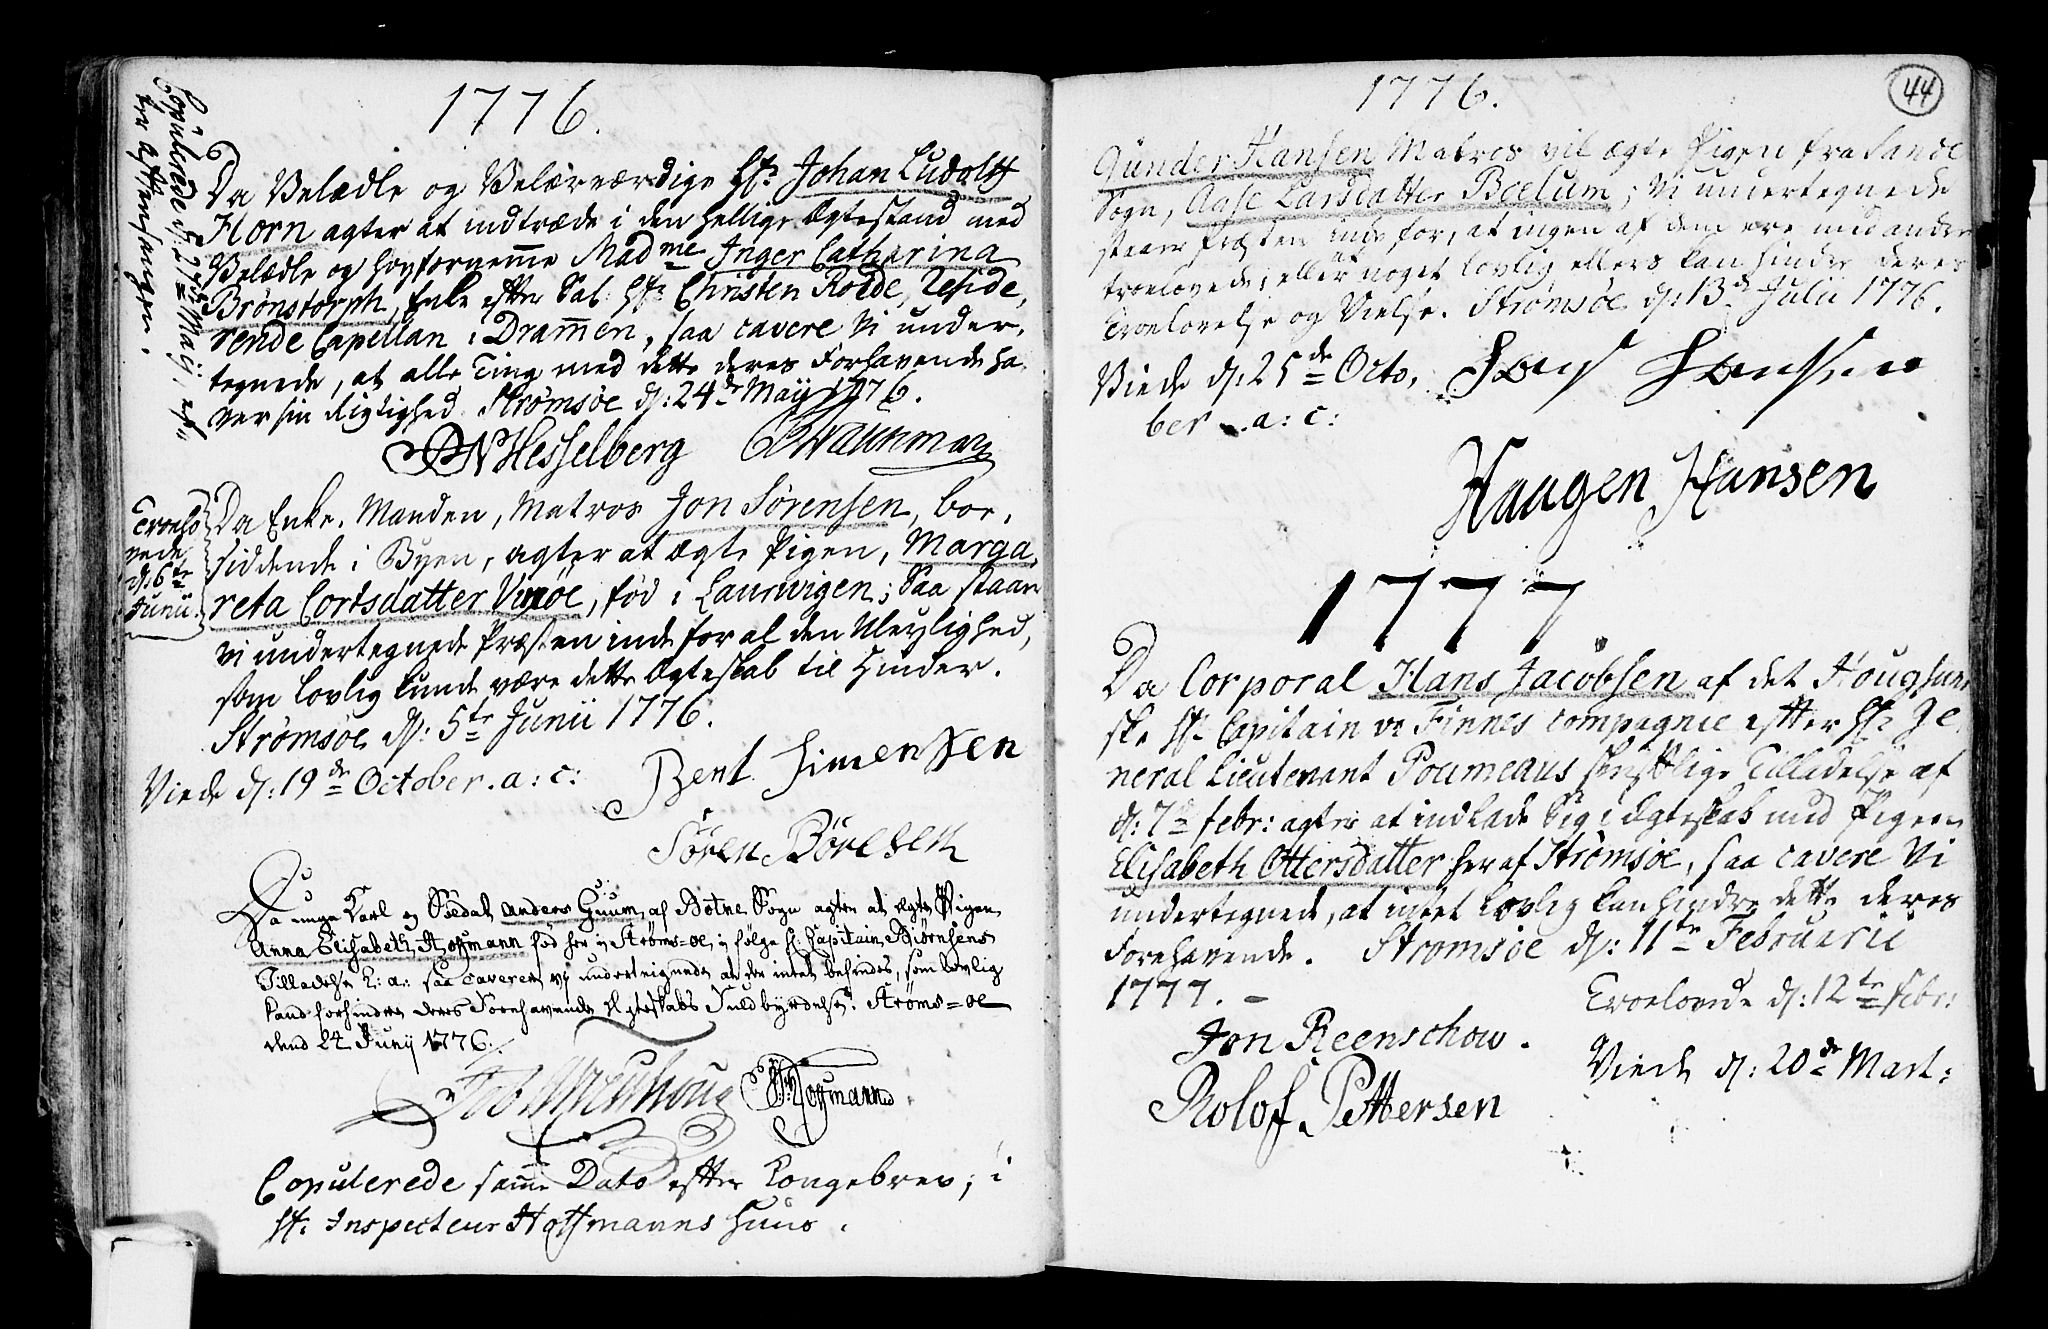 1776.
Copulerede d: 27de Maij, ef-
ter Aftensangen.
Da Velædle og Velærværdige Hr: Johan Ludolff
Horn agter at indtræde i den hellige Ægtestand med
Velædle og høyfornemme Madme Inger Catharina
Brønstorph, Enke efter Sal: Hr: Christen Rolde, Reside,
rende Capellan i Drammen, saa cavere Vi under,
tegnede, at alle Ting med dette deres Forhavende ha-
ver sin Rigtighed. Strømsøe d: 24de May 1776.
Hesselberg
Troelo
vede
d: 6te
Junii.
Da Enke-Manden, Matros Jon Sørensen, boe,
siddende i Byen, agter at ægte Pigen, Marga,
reta Cortsdatter, fød i Laurwigen; Saa staar
vi undertegnede Præsten inde for al den Uleylighed,
som lovlig kunde være dette Ægteskab til Hinder.
Strømsøe d: 5te Junii 1776.
Viede d: 19de October. a: c:
Bent Simensen
Sören Böresen
Da unge Karl og Soldat Anders Guum af Botne Sogn agter at ægte Pigen
Anna Elisabeth Hoffmann fød her i Strøms=øe, i følge Hr: Capitain Biørnsens
Tilladelse saa caverer vi underteignede at der intet befindes, som lovlig
kand forhindre deres Forehavende Ægteskabs Fuldbyrdelse. Strøms=øe
dend 24 Junij 1776.
Hoffmann
Copulerede samme Dato efter Kongebrev, i
Hr: Inspecteur Hoffmanns Huus.
44
1776.
Gunder Hansen Matros vil ægte Pigen fra Sande
Sogn, Aase Larsdatter Boelum; Vi undertegnede
staaer Præsten inde for, at ingen af dem ere med andre
troelovede, eller at noget lovlig ellers kan hindre deres
Troelovelse og Vielse. Strømsøe d: 13de Julii 1776.
Viede d: 25de Octo,
ber. a: c:
Haagen Hansen
1777
Da Corporal Hans Jacobsen af det Hougsund
ske Hr: Capitain v: Finnes Compagnie efter Hr: Ge,
neral Lieutenant Poumeaus skriftlige Tilladelse af
d: 7de febr: agter at indlade Sig i Ægteskab med Pigen
Elisabeth Ottersdatter her af Strømsøe, saa cavere Vi
undertegnede, at intet lovlig kan hindre dette deres
Forehavende. Strømsøe d: 11te Februarii
1777. -
Troelovede d: 12te febr:
Jon Reenschow.
Viede d: 20de Mart:
Rolof Pettersen